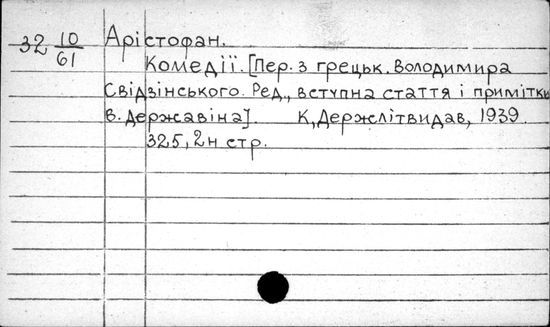 32 10/61 Арістофан.
Комедії. [Пер. з грецьк. Володимира
Свідзінського. Ред., вступна стаття і примітки
В. Державіна]. К, Держлітвидав, 1939.
325, 2н стр.